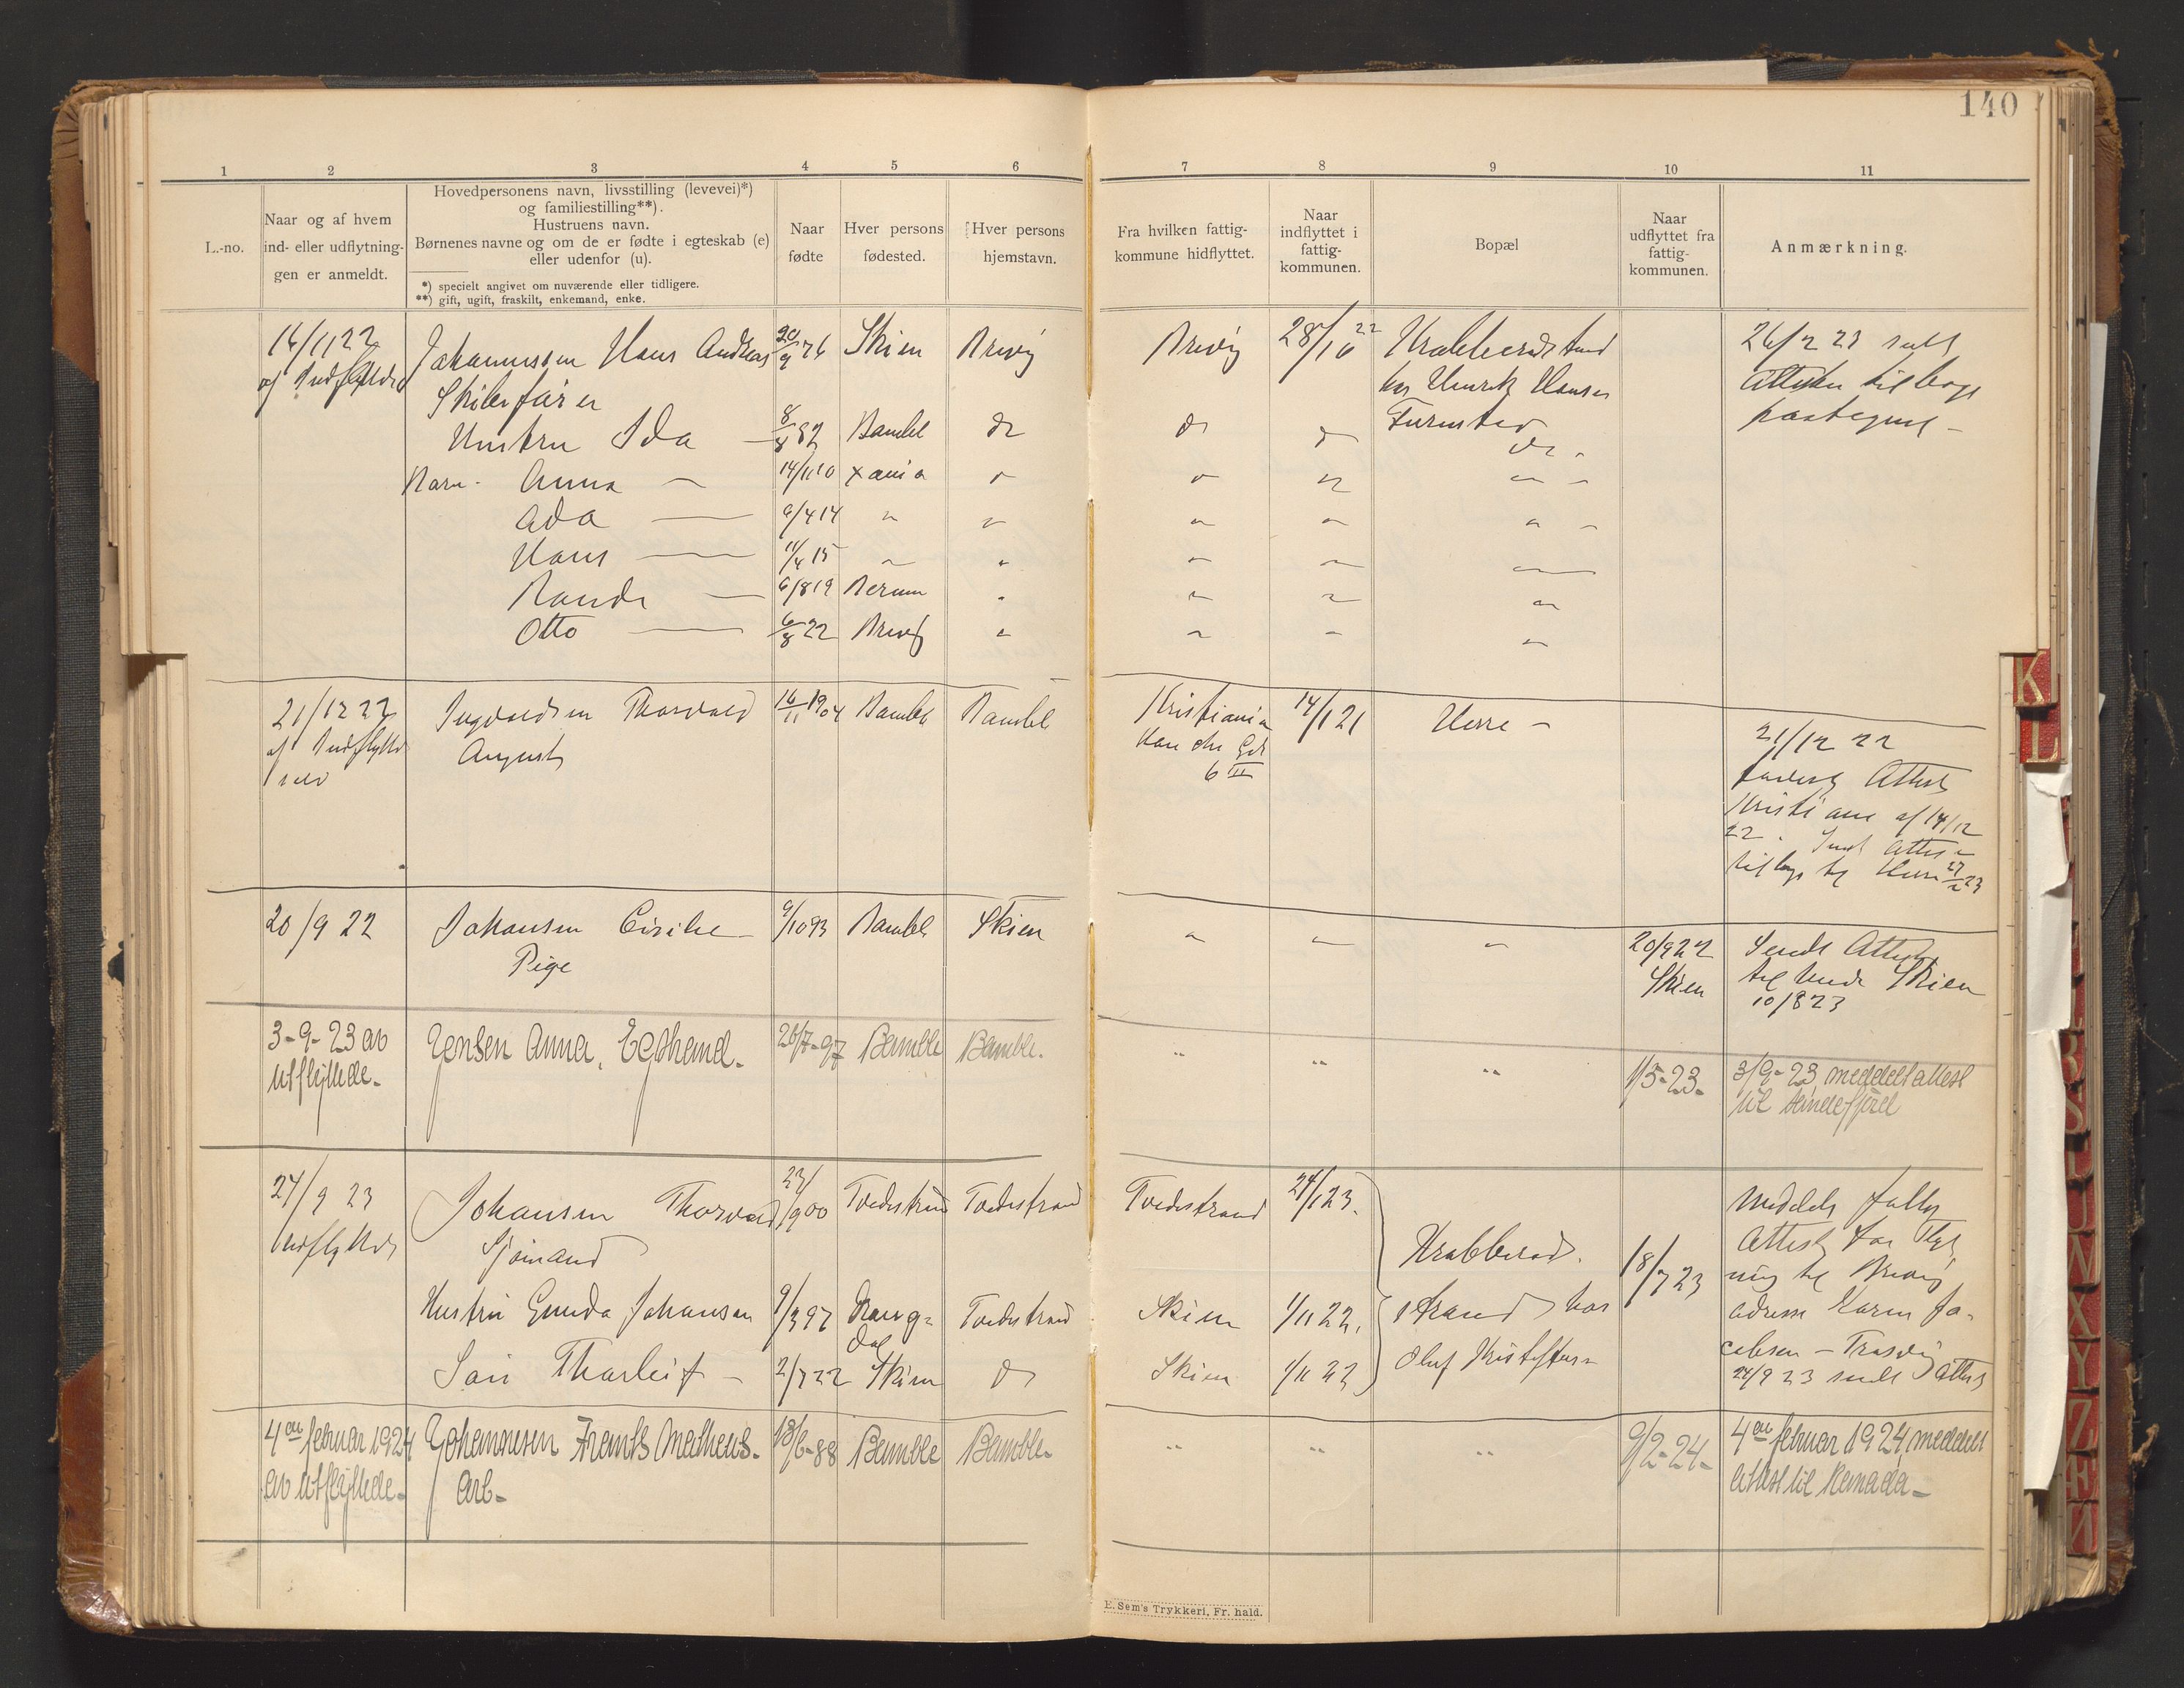 140
1 2 3 4 5 6 7 8 9 10 11
L.-no.
Naar og af hvem
ind- eller udflytnin-
gen er anmeldt.
Hovedpersonens navn, livsstilling (levevei)*)
og familiestilling**).
Hustruens navn.
Børnenes navne og om de er fødte i egteskab (e)
eller udenfor (u).
*) specielt angivet om nuværende eller tidligere.
**) gift, ugift, fraskilt, enkemand, enke.
Naar
fødte
Hver persons
fødested.
Hver persons
hjemstavn.
Fra hvilken fattig-
kommune hidflyttet.
Naar
indflyttet i
fattig-
kommunen.
Bopæl
Naar
udflyttet fra
fattig-
kommunen.
Anmærkning.
16/11 22 Johannessen Hans Andreas 20/9 76 Skien Brevig Brevig 28/10 22 Krabberødstrand 26/2 23 sendt
af Indflyttede Skibsfører hos Henrik Hansen Attester tilbage
Furustad paategnet -
Hustru Ida - 8/8 82 Bamble do do do do -
Barn - Anna - 14/11 10 Xania " " " " -
Ada - 9/4 14 " " " " " -
Hans - 11/4 15 " " " " "
Randi - 6/8 19 Berum " " " "
Otto - 6/8 22 Brevig " " " "
21/12 22 Ingvaldsen Thorvald 16/11 1904 Bamble Bamble Kristiania 14/1 21 Herre - 21/12 22
af Indflyttede August
selv 6 III
Attest
Kristiania af 14/12
22. Sendt Attest
tilbage til Herre 27/2 23
20/9 22 Johansen Cicilie - 9/10 93 Bamble Skien " " " 20/9 22 Sendt Attest
Pige Skien til Skien
10/8 23
3-9-23 av Jensen Anna, Egthemd. 26/7-97 Bamble Bamble. " " " 1/5-23- 3/9-23 meddelt attest
utflyttede- til Sandefjord
24/9 23 Johansen Thorvald 23/9 00 Tvedestrand Tvedestrand Tvedestrand 24/1 23. Krabberød- 18/7 23 Meddelt
Indflyttede Sjømand Attest for Flyt
ning til Brevig
Hustru Gunda Johansen 9/3 97 Drang- Tvedestrand Skien 1/11 22. strand hos adresse Karen Ja-
dal cobsen - Trosvig
Søn Thorleif - 2/7 22 Skien do Skien 1/11 22 Oluf Kristoffersen 24/9 23 sendt Attest
4de februar 1924 Johannesen Frants Matheus- 18/6-88 Bamble Bamble- " " " 9/2-24- 4de februar 1924 meddelt
av utflyttede- Arb- attest til Kanada-
E. Sem's Trykkeri, Fr. hald.
K
L